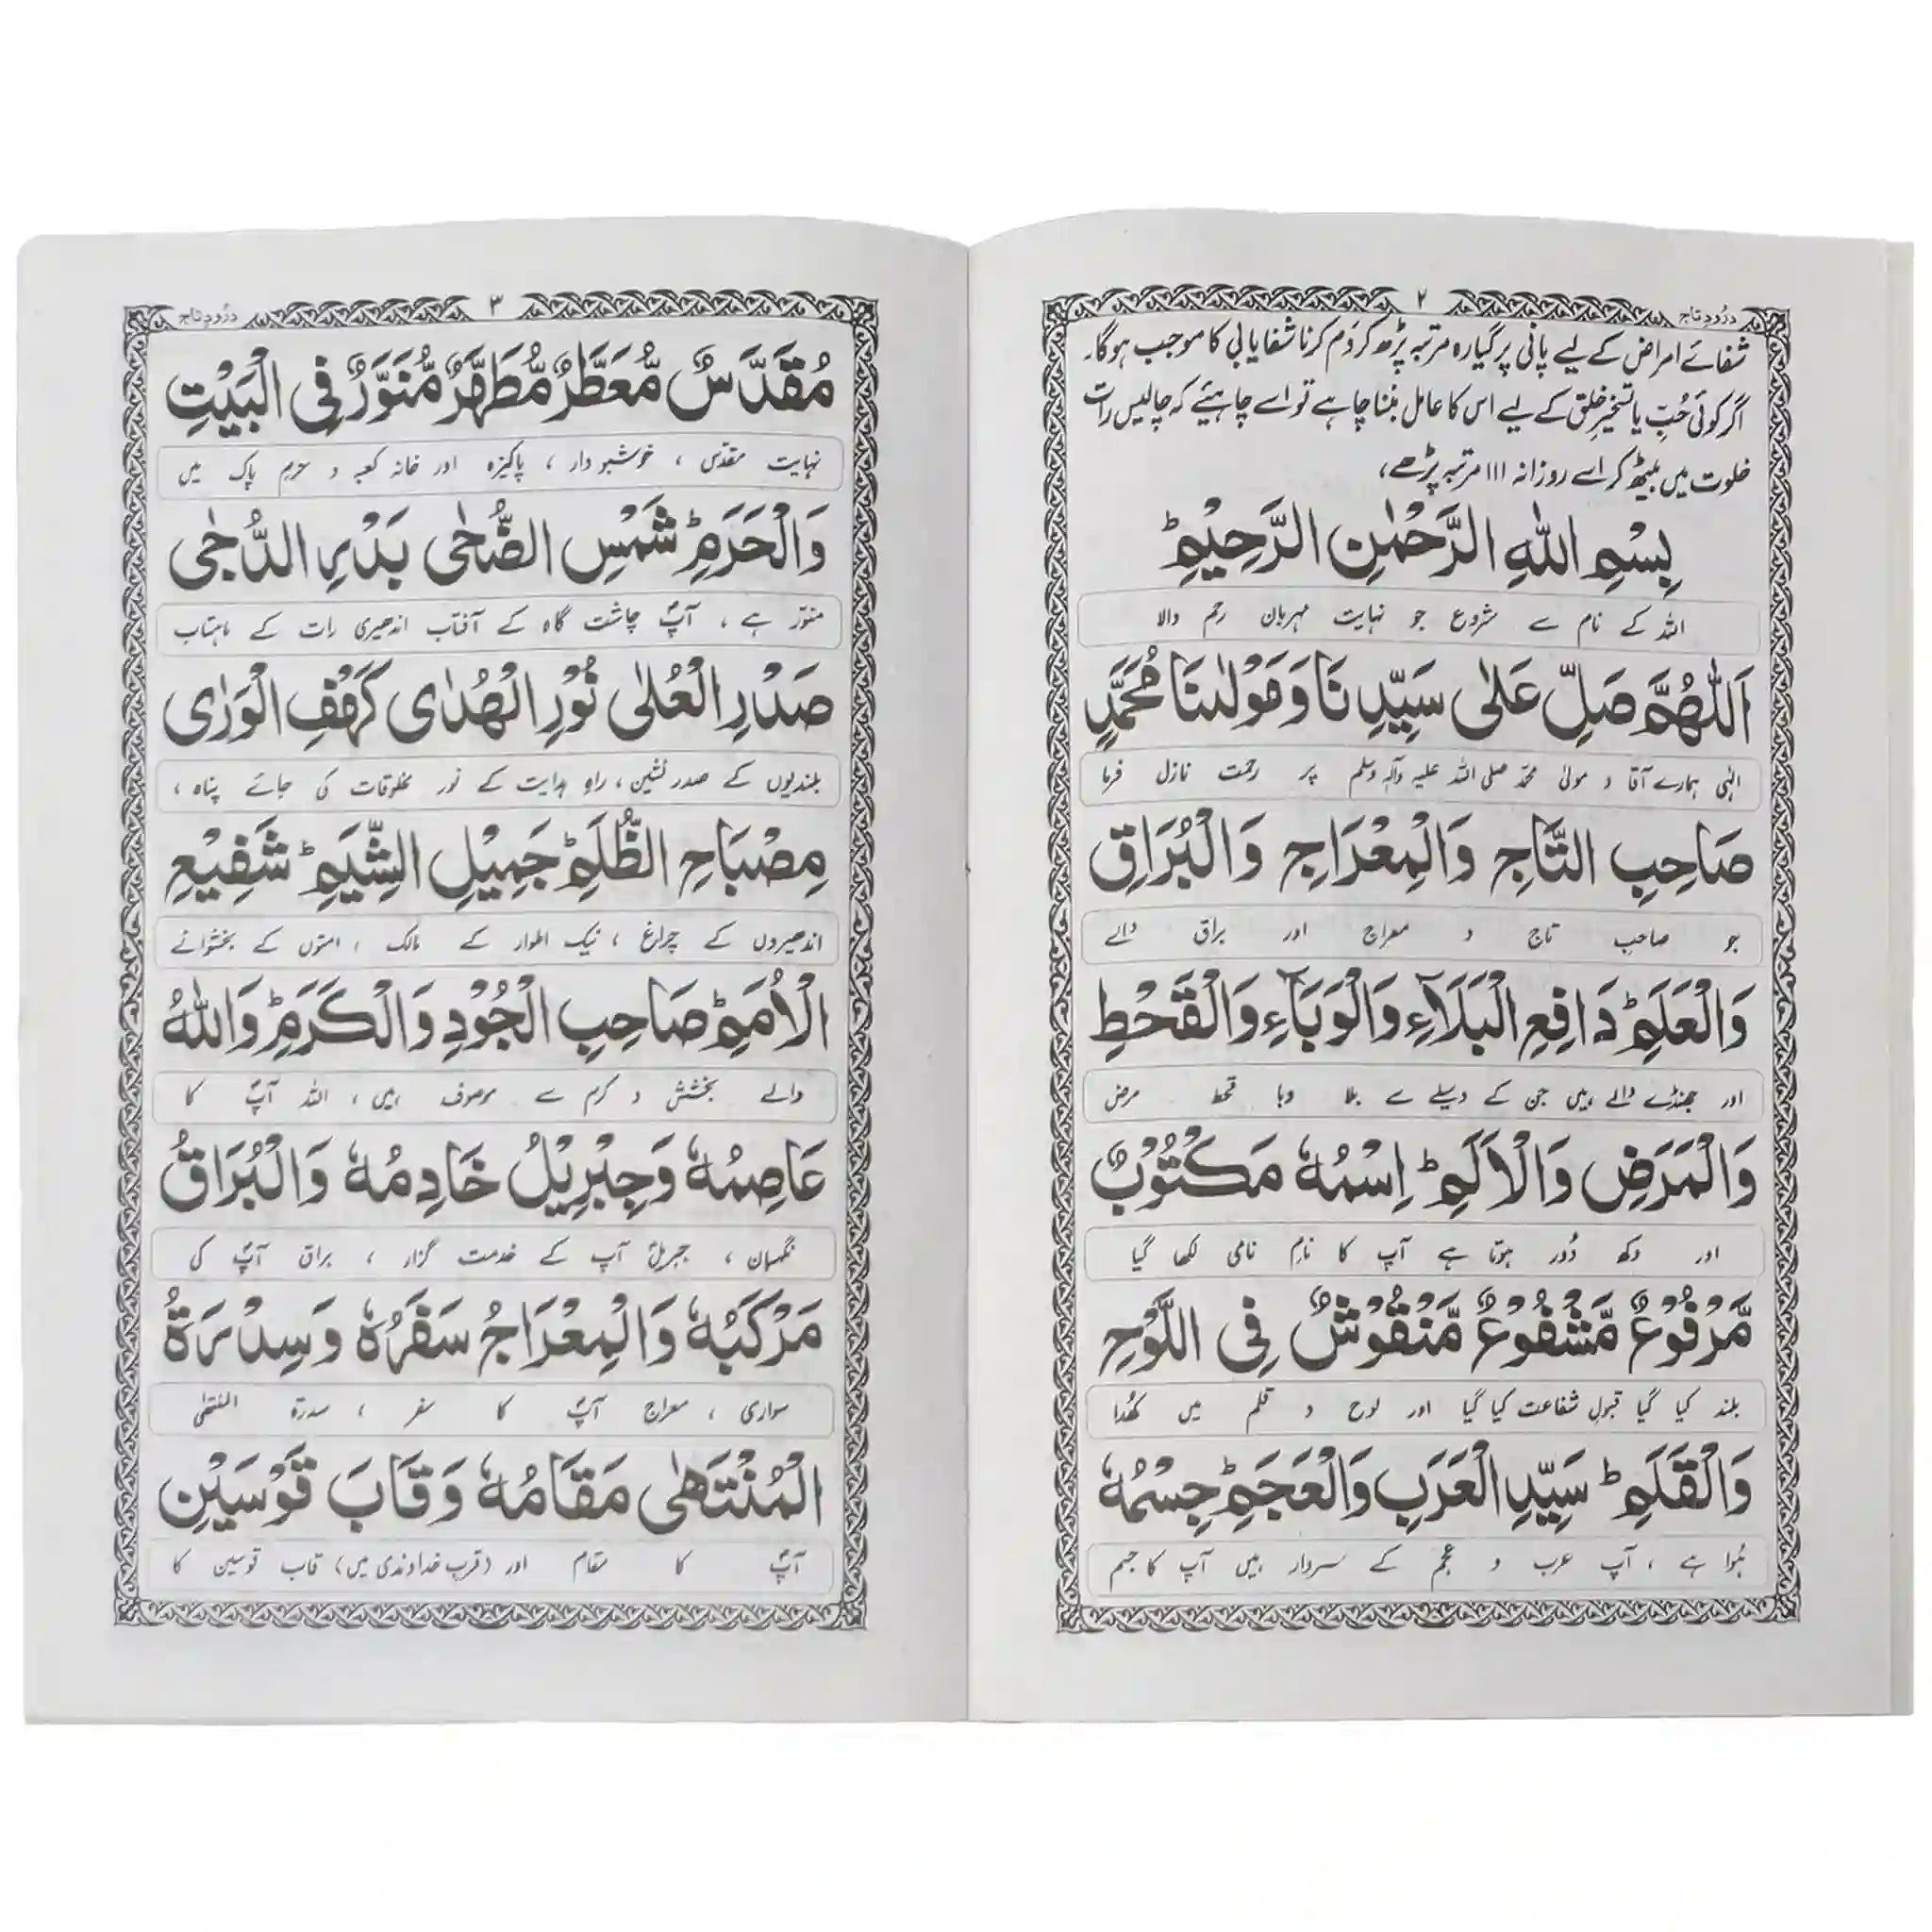 درُود تاج
۲
شفائے امراض کے لیے پانی پر گیارہ مرتبہ پڑھ کر دَم کرنا شفایابی کا موجب ہوگا۔
اگر کوئی حُبّ یا تسخیرِ خلق کے لیے اس کا عامل بننا چاہے تو اسے چاہیئے کہ چالیس رات
خلوت میں بیٹھ کر اسے روزانہ ۱۱۱ مرتبہ پڑھے،
بِسْمِ اللهِ الرَّحْمٰنِ الرَّحِيْمِؕ
اللہ کے نام سے شروع جو نہایت مہربان رحم والا
اَللّٰهُمَّ صَلِّ عَلٰى سَيِّدِنَا وَمَوْلٰىنَا مُحَمَّدٍ
الٰہی ہمارے آقا و مولیٰ محمّد صلی اللہ علیہ وآلہٖ وسلم پر رحمت نازل فرما
صَاحِبِ التَّاجِ وَالْمِعْرَاجِ وَالْبُرَاقِ
جو صاحبِ تاج و معراج اور براق والے
وَالْعَلَمِؕ دَافِعِ الْبَلَآءِ وَالْوَبَآءِ وَالْقَحْطِ
اور جھنڈے والے ہیں جن کے وسیلے سے بلا وبا قحط مرض
وَالْمَرَضِ وَالْاَلَمِؕ اِسْمُهٗ مَكْتُوْبٌ
اور دکھ دُور ہوتا ہے آپ کا نامِ نامی لکھا گیا
مَّرْفُوْعٌ مَّشْفُوْعٌ مَّنْقُوْشٌ فِى اللَّوْحِ
بلند کیا گیا قبول شفاعت کیا گیا اور لوح و قلم میں کھُدا
وَالْقَلَمِؕ سَيِّدِ الْعَرَبِ وَالْعَجَمِؕ جِسْمُهٗ
ہُوا ہے ، آپ عرب و عجم کے سردار ہیں آپ کا جسم
درُود تاج
۳
مُقَدَّسٌ مُّعَطَّرٌ مُّطَهَّرٌ مُّنَوَّرٌ فِى الْبَيْتِ
نہایت مقدّس ، خوشبودار ، پاکیزہ اور خانہ کعبہ و حرم پاک میں
وَالْحَرَمِؕ شَمْسِ الضُّحٰى بَدْرِ الدُّجٰى
منوّر ہے ، آپؐ چاشت گاہ کے آفتاب اندھیری رات کے ماہتاب
صَدْرِ الْعُلٰى نُوْرِ الْهُدٰى كَهْفِ الْوَرٰى
بلندیوں کے صدر نشین ، راہِ ہدایت کے نور مخلوقات کی جائے پناہ ،
مِصْبَاحِ الظُّلَمِؕ جَمِيْلِ الشِّيَمِؕ شَفِيْعِ
اندھیروں کے چراغ ، نیک اطوار کے مالک ، امتوں کے بخشوانے
الْاُمَمِؕ صَاحِبِ الْجُوْدِ وَالْكَرَمِؕ وَاللهُ
والے بخشش و کرم سے موصوف ہیں ، اللہ آپؐ کا
عَاصِمُهٗ وَجِبْرِيْلُ خَادِمُهٗ وَالْبُرَاقُ
نگہبان ، جبریلؑ آپ کے خدمت گزار ، براق آپؐ کی
مَرْكَبُهٗ وَالْمِعْرَاجُ سَفَرُهٗ وَسِدْرَةُ
سواری ، معراج آپؐ کا سفر ، سدرۃ المنتہٰی
الْمُنْتَهٰى مَقَامُهٗ وَقَابَ قَوْسَيْنِ
آپؐ کا مقام اور (قربِ خداوندی میں) قاب قوسین کا